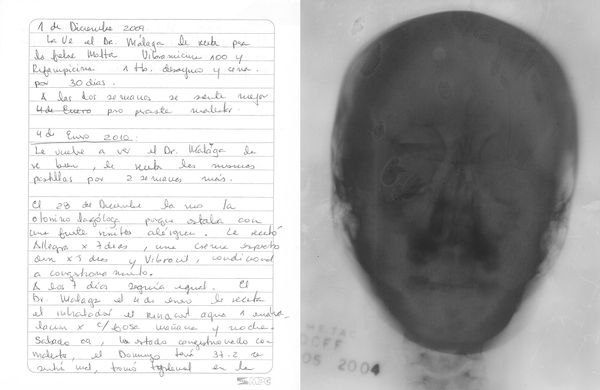 1 de Diciembre 2009
La ve el Dr. Málaga le receta por
la fiebre Malta Vibramicina 100 y
Rifampicina 1 tb. desayuno y cena.
por 30 días.
A las dos semanas se siente mejor
4 de Enero pero persiste malestar.
4 de Enero 2010
Le vuelve a ver el Dr. Málaga
ve bien, le receta las mismas
pastillas por 2 semanas más.
El 28 de Diciembre la vio la
otorrino porque estaba con
una fuerte rinitis alérgica. Le recetó
Allegra x 7 días, una crema
x 5 días y Vibrocil, condicional
a congestionamiento.
A los 7 días seguía igual. El
Dr Málaga el 4 de enero le receta
el inhalador el agua 1
x c/fosa mañana y noche.
ha estado congestionada con
molestia, el Domingo tenía 37.2 se
sentía mal, tomó en la
METAC
05 2004